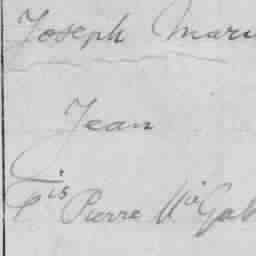 Joseph Mari
Jean
Fis Pierre Mie Gab